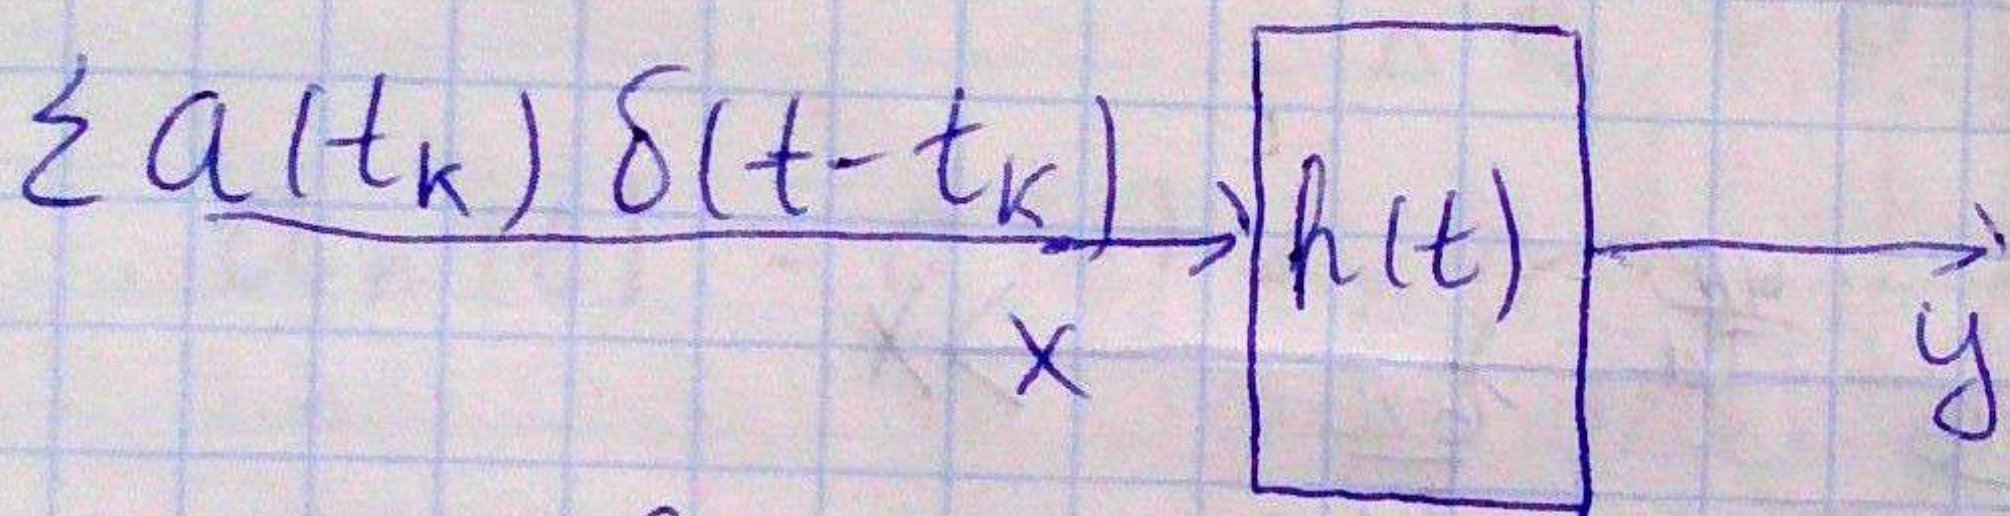 Σ a(tₖ) δ(t-tₖ)
h(t)
x
y